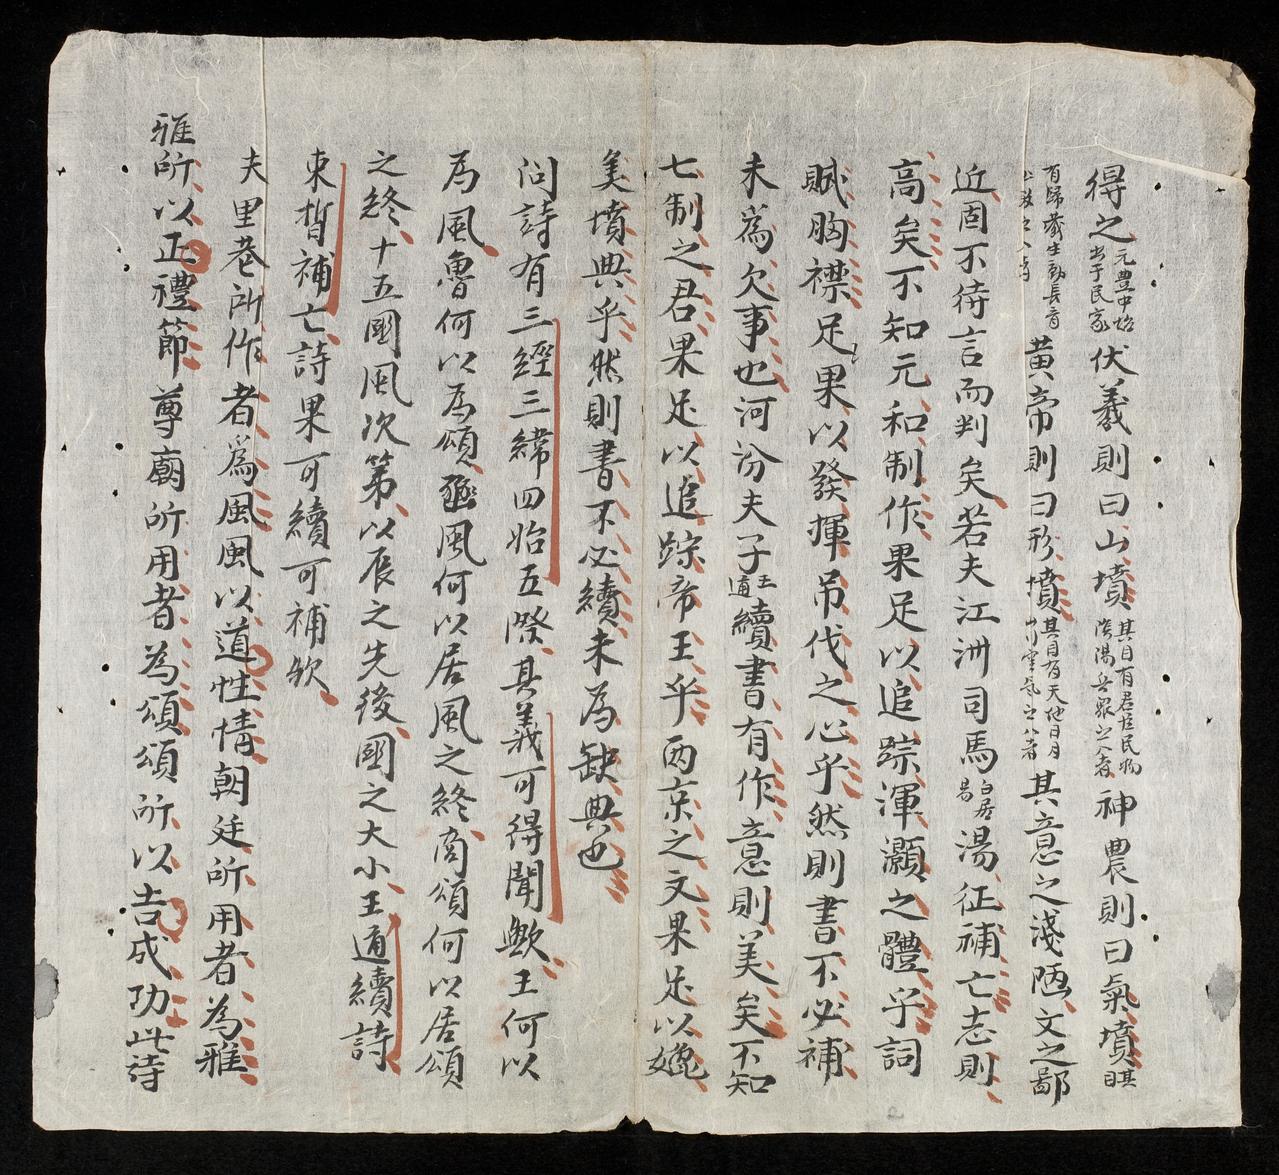 得之元豊中始出于民家伏羲則曰山墳其目有君臣民物陰陽兵象之八者神農則曰氣墳其目
有歸藏生動長育止殺之八者黄帝則曰形墳其目有天地日月山川雲氣之八者其意之淺陋文之鄙
近固不待言而判矣若夫江洲司馬白居易湯征補亡志則
高矣不知元和制作果足以追踪渾灝之體乎詞
賦胸襟足果以發揮吊伐之心乎然則書不必補
未爲欠事也河汾夫子王通續書有作意則美矣不知
七制之君果足以追踪帝王乎两京之文果足以媲
美墳典乎然則書不必續未為缺典也
问詩有三經三緯四始五際其義可得聞歟王何以
為風魯何以為頌豳風何以居風之終商頌何以居頌
之終十五國風次第以辰之先後國之大小王通續詩
束晳補亡詩果可續可補欤
夫里巷所作者爲風風以道性情朝廷所用者為雅
雅所以正禮節尊廟所用者為頌頌所以告成功此詩